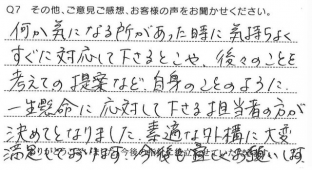 Q7 その他、ご意見ご感想、お客様の声をお聞かせください。
何か気になる所があった時に気持ちよく
すぐに対応して下さるとこや、後々のことを
考えての提案など、自身のことのように
一生懸命に応対して下さる担当者の方が
決めてとなりました。素適な外構に大変
満足しております。今後も宜しくお願いします